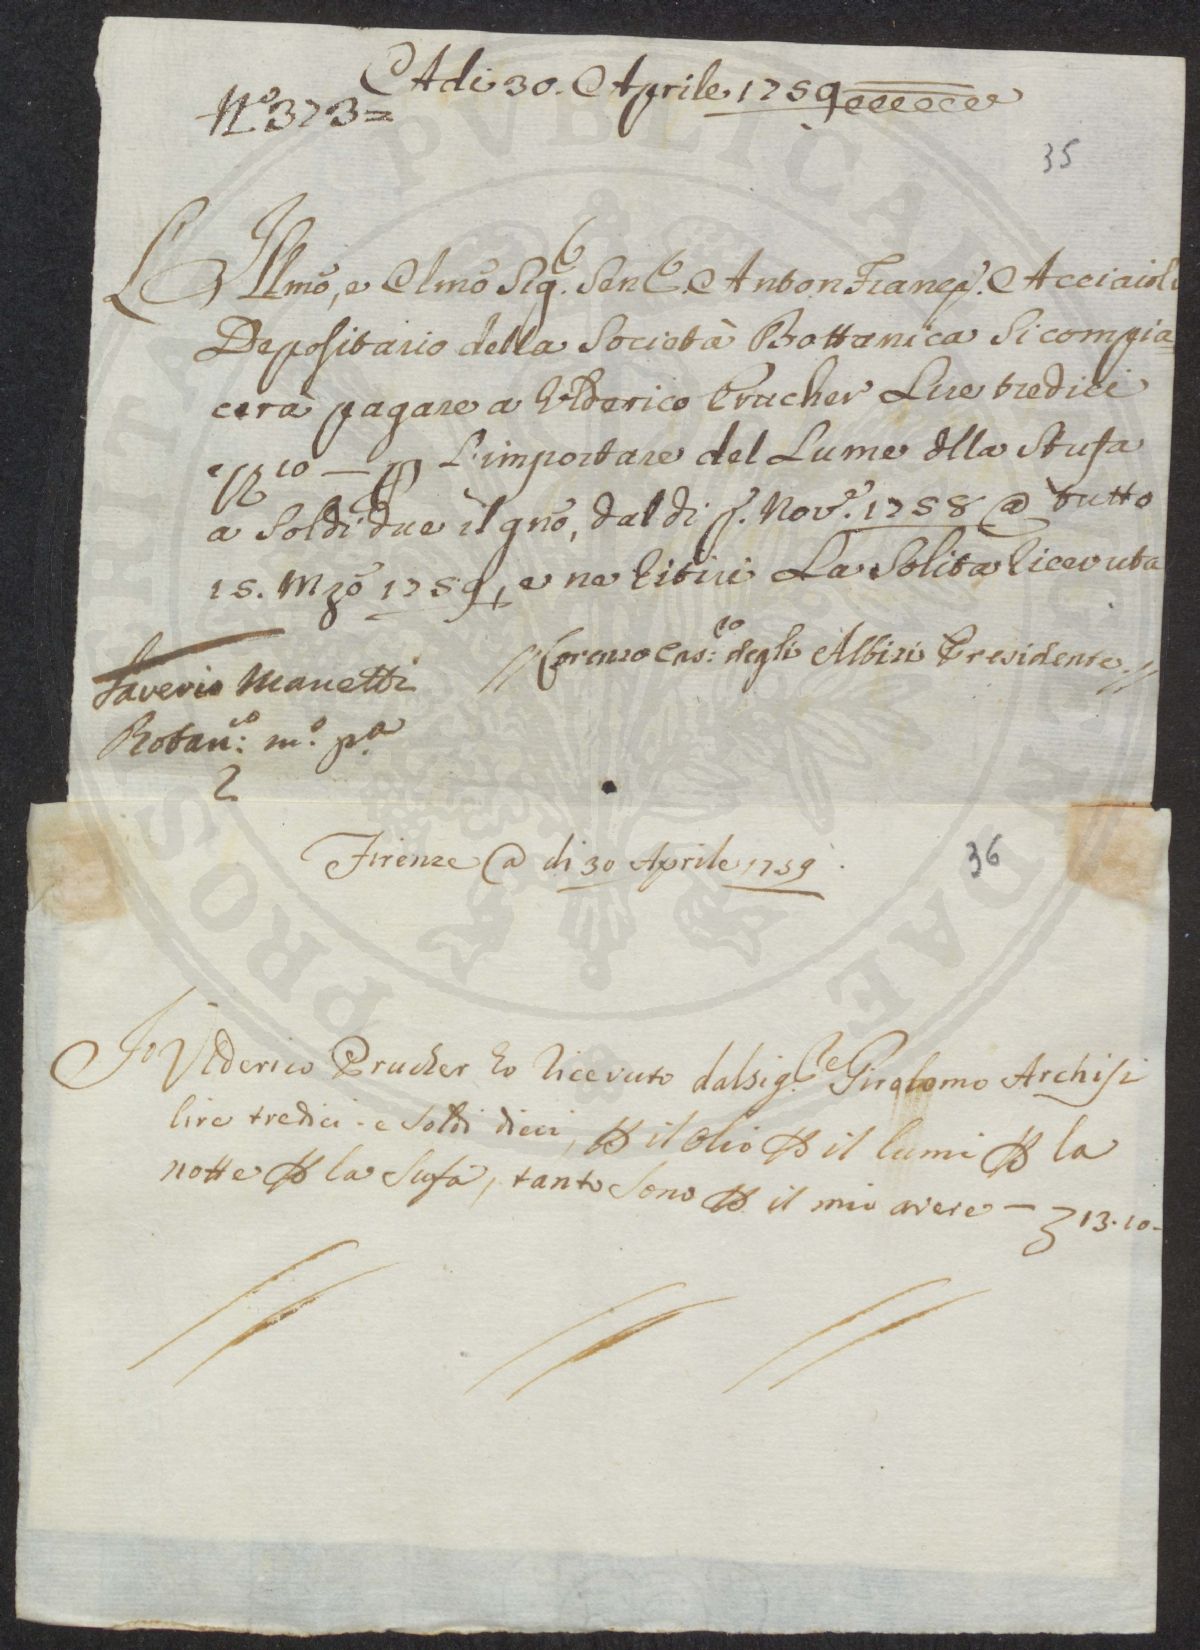 Adi 30. Aprile 1759
N.o 373=
35
L'Illmo, e Clmo Sig.r Sen.r Anton Franc.o Acciaioli
Depositario della Società Bottanica Si compia=
cerà pagare a Ulderico Prucher Lire tredici
e 10 — p L'importare del Lume Alla Stufa
a Soldi due il gno, dal di p.o Nov.e 1758 @ tutto
15. Mzo 1759, e ne Ritiri La Solita Ricevuta
Lorenzo Cas.co degli Albizi Presidente
Saverio Manetti
Botan.co m.o p.a
2
Firenze @ di 30 Aprile 1759
36
Jo Ulderico Prucher ho Ricevuto dal Sig.re Girolomo Archisi
lire tredici e Soldi dieci, p il olio p il lumi p la
notte p la Stufa, tanto Sono p il mio avere — 13.10-
PUBLICAE
PROSPERITATI